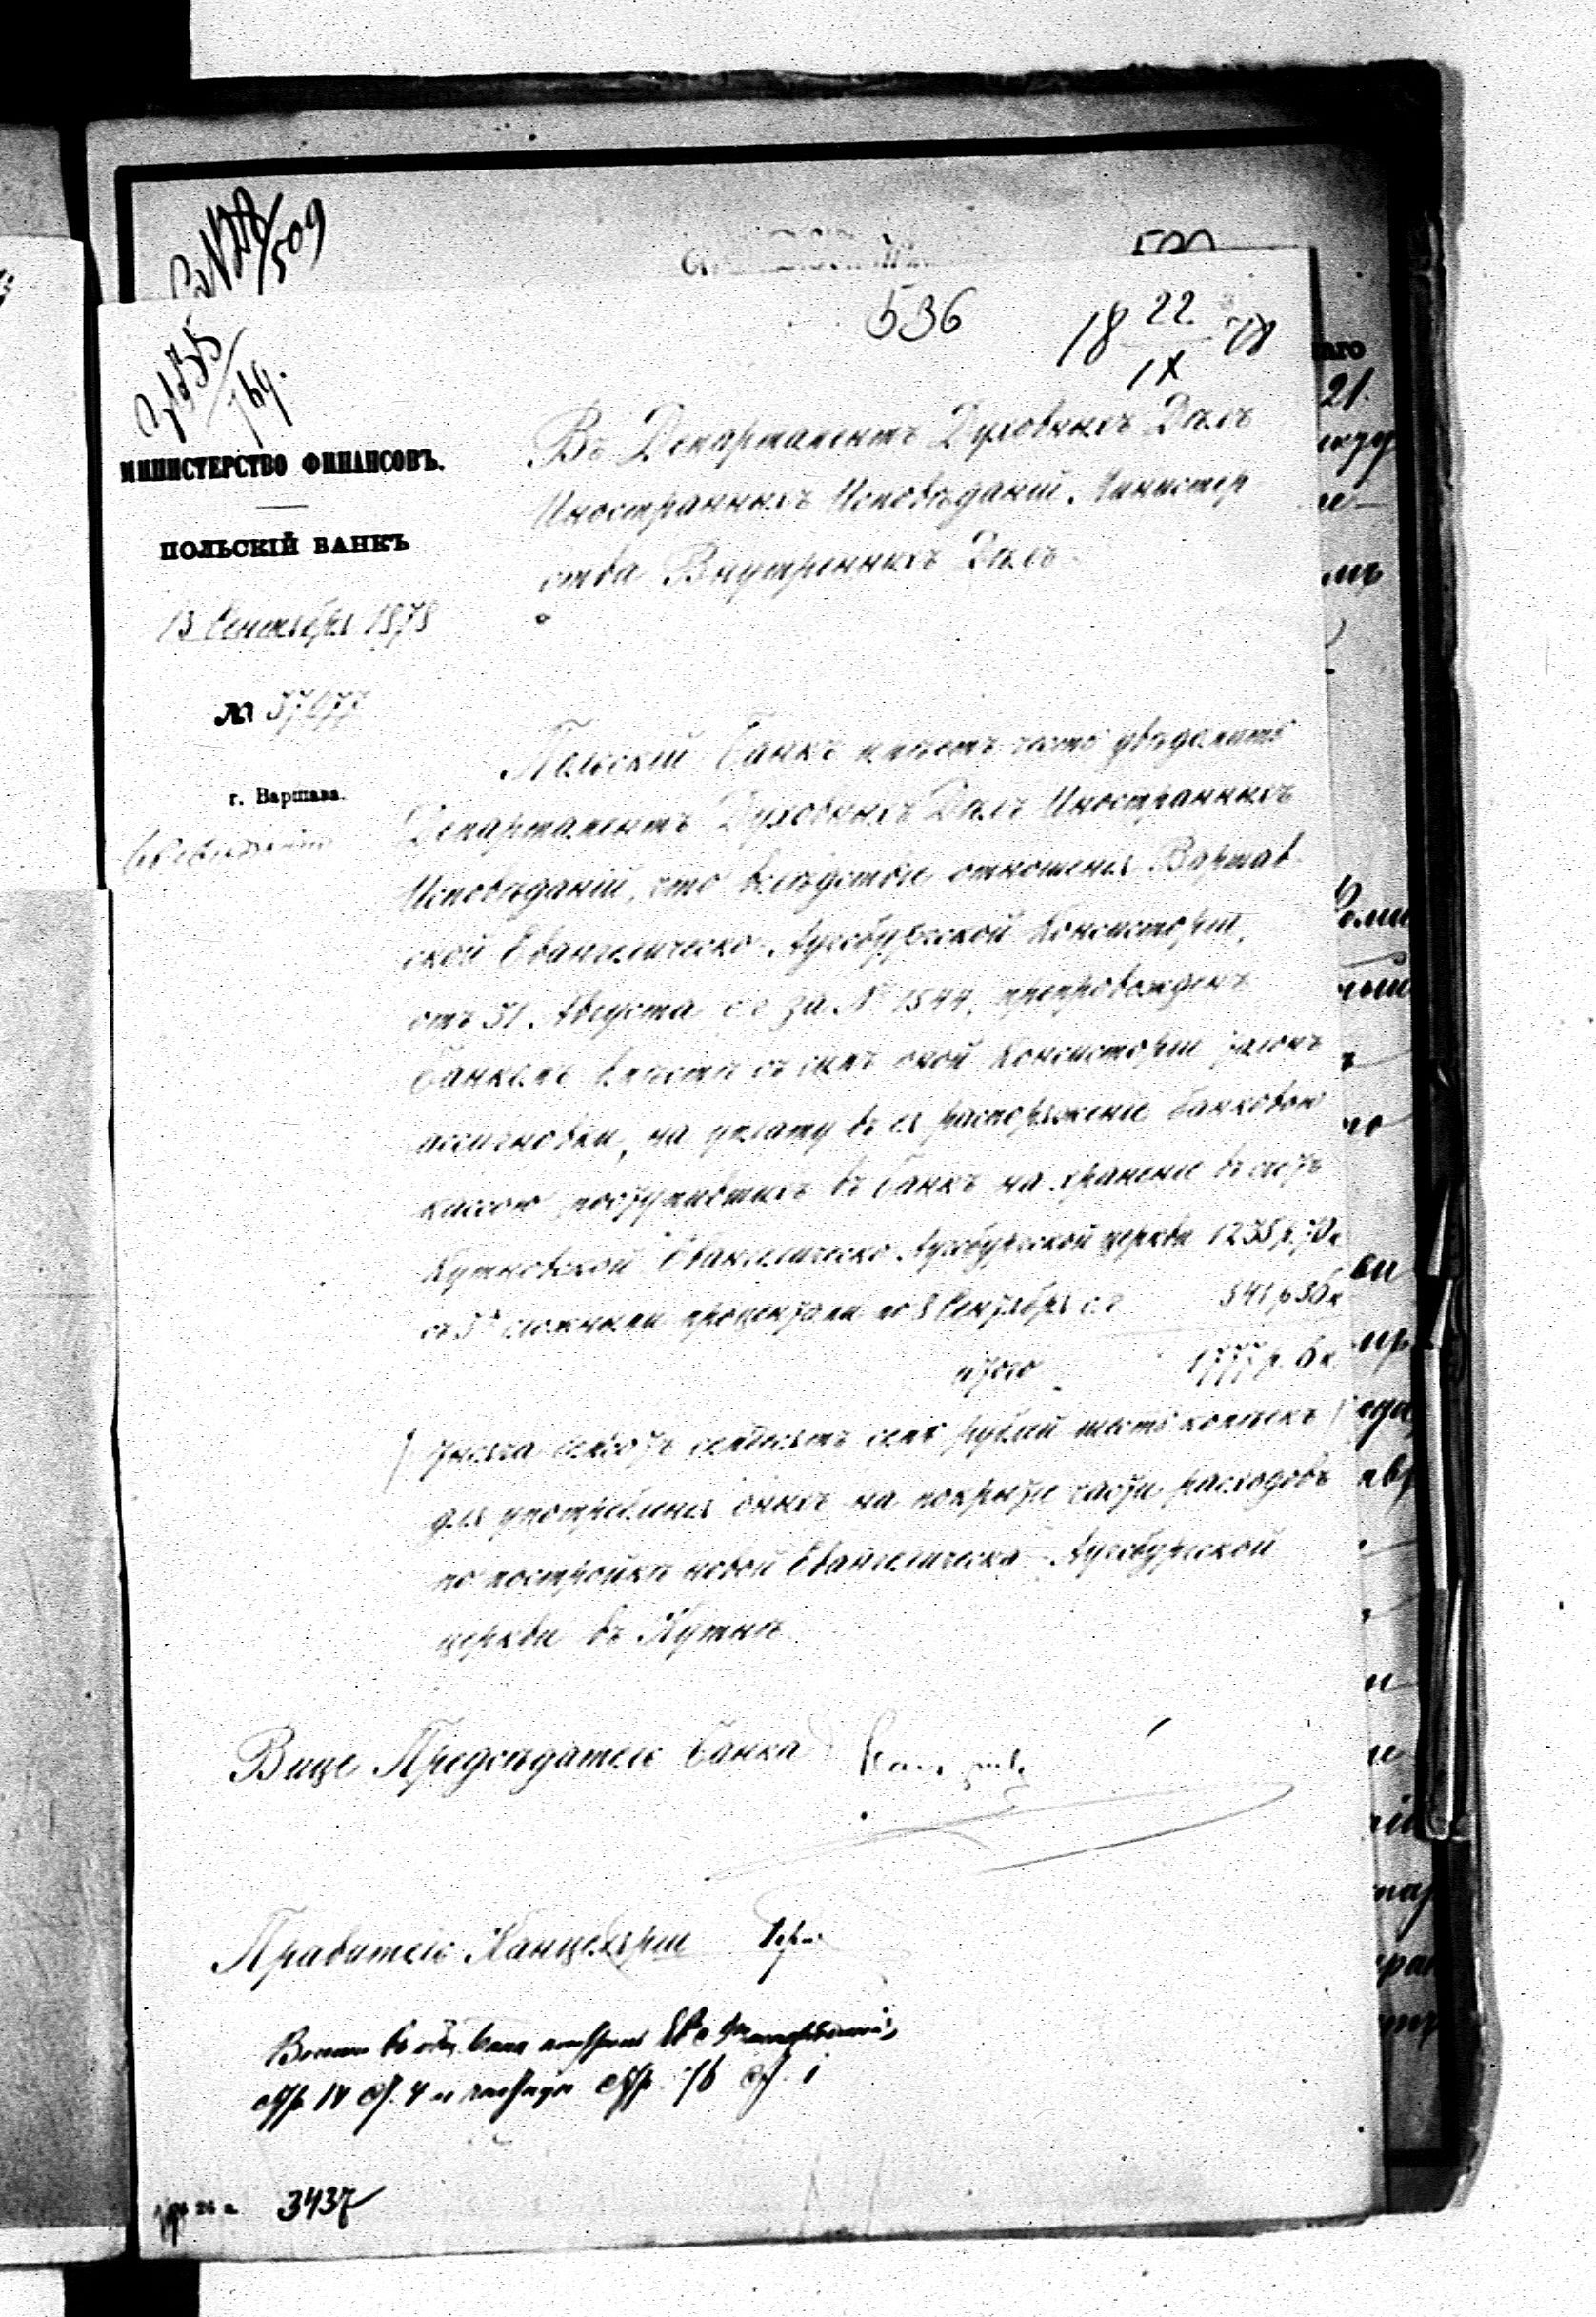 509
536
18 22/IX 78
769.
МИНИСТЕРСТВО ФИНАНСОВЪ.
ПОЛЬСКІЙ БАНКЪ
13 Сентября 1878
№ 37077
г. Варшава.
Въ Департаментъ Духовныхъ Дѣлъ
Иностранныхъ Исповѣданій, Министер
ства Внутреннихъ Дѣлъ.
Польскій Банкъ имѣетъ честь увѣдомить
Департаментъ Духовныхъ Дѣлъ Иностранныхъ
Исповѣданій, что вслѣдствіе отношенія Варшав
ской Евангелическо-Аугсбургской Консисторіи,
отъ 31 Августа с. г. за № 1544, препровожденъ
Банкомъ вмѣстѣ съ симъ оной Консисторіи
ассигновки, на уплату въ ея распоряженіе банковою
кассою поступившихъ въ Банкъ на храненіе въ счетъ
Кутновской Евангелическо-Аугсбургской церкви 1235 р. 70 к
съ 3% сложными процентами по 8 Сентября с. г. 541 р 36 к
итого 1777 р. 6 к.
/ тысяча семьсотъ семьдесятъ семь рублей шесть копѣекъ /
для употребленія оныхъ на покрытіе части расходовъ
по постройкѣ новой Евангелическо-Аугсбургской
церкви въ Кутнѣ.
Вице Предсѣдатель Банка
Правитель Канцеляріи
3437